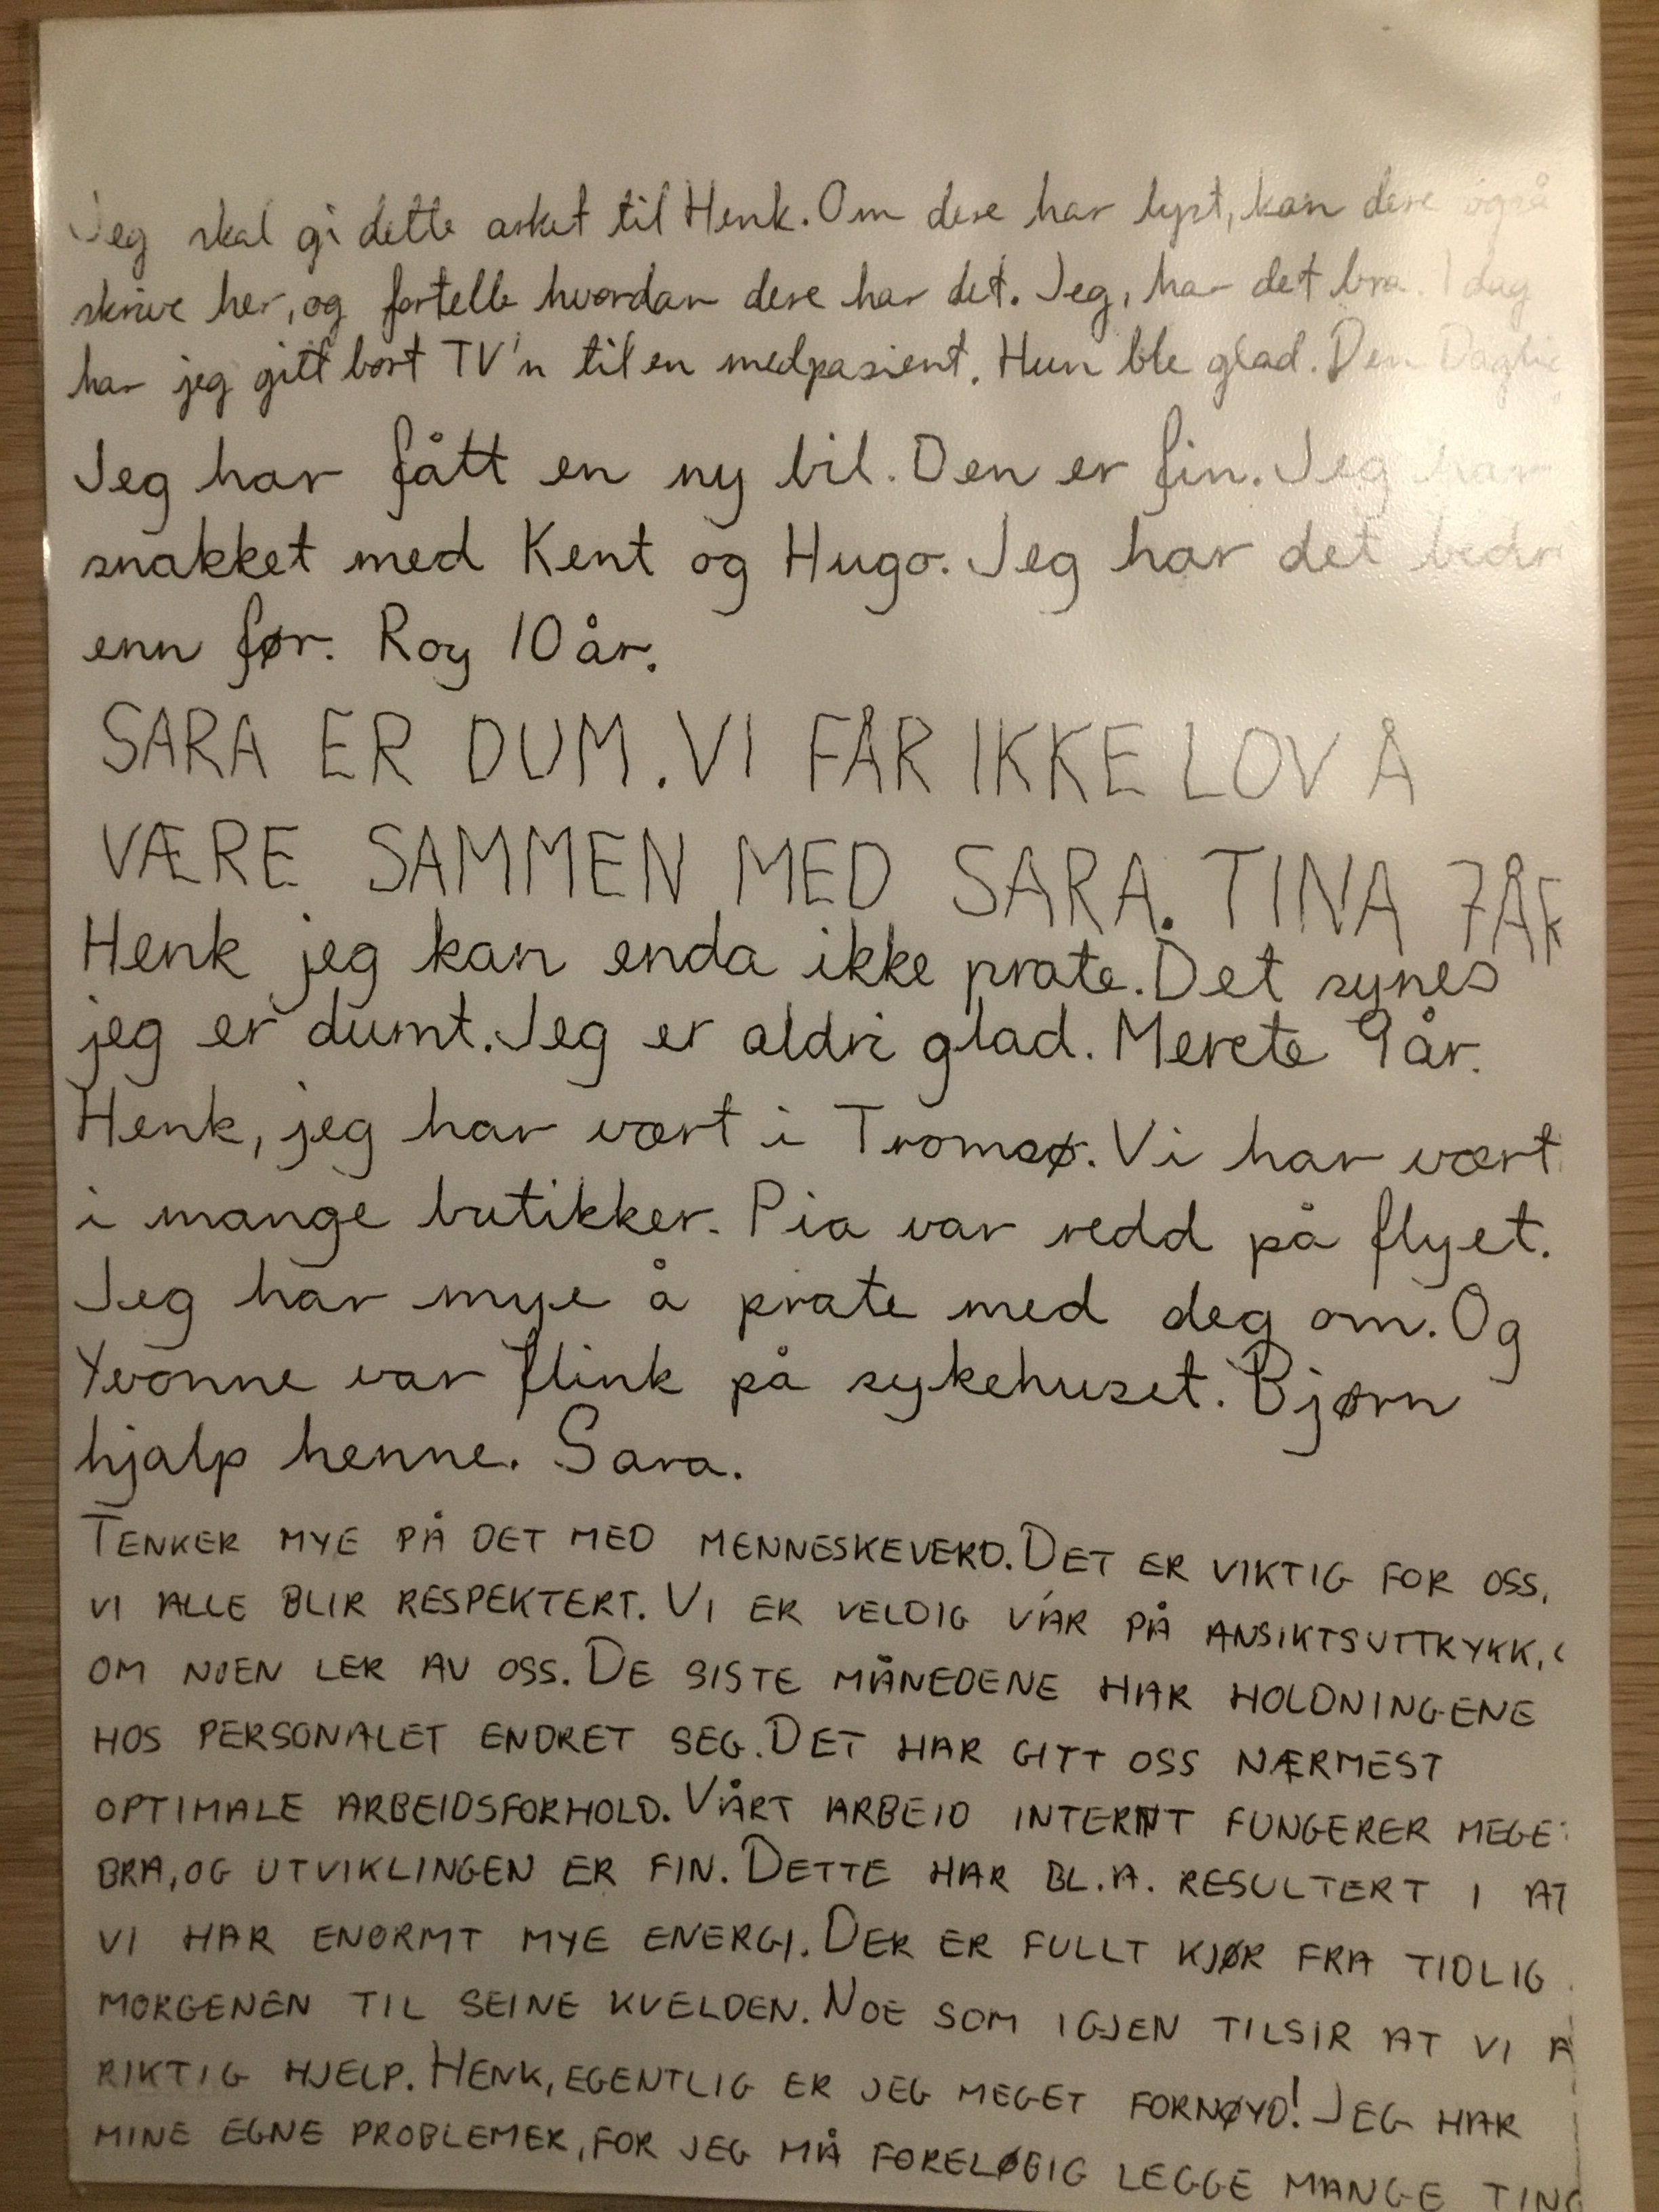 Jeg skal gi dette arket til Henk. Om dere har lyst, kan dere også
skrive her, og fortelle hvordan dere har det. Jeg, har det bra. I dag
har jeg gitt bort TV'n til en medpasient. Hun ble glad. Den Daglig
Jeg har fått en ny bil. Den er fin. Jeg har
snakket med Kent og Hugo. Jeg har det bedr
enn før. Roy 10 år.
SARA ER DUM. VI FÅR IKKE LOV Å
VÆRE SAMMEN MED SARA. TINA 7 ÅR
Henk jeg kan enda ikke prate. Det synes
jeg er dumt. Jeg er aldri glad. Merete 9 år.
Henk, jeg har vært i Tromsø. Vi har vært
i mange butikker. Pia var redd på flyet.
Jeg har mye å prate med deg om. Og
Yvonne var flink på sykehuset. Bjørn
hjalp henne. Sara.
TENKER MYE PÅ DET MED MENNESKEVERD. DET ER VIKTIG FOR OSS,
VI ALLE BLIR RESPEKTERT. VI ER VELDIG VÅR PÅ ANSIKTSUTTRYKK,
OM NOEN LER AV OSS. DE SISTE MÅNEDENE HAR HOLDNINGENE
HOS PERSONALET ENDRET SEG. DET HAR GITT OSS NÆRMEST
OPTIMALE ARBEIDSFORHOLD. VÅRT ARBEID INTERNT FUNGERER MEGE
BRA, OG UTVIKLINGEN ER FIN. DETTE HAR BL.A. RESULTERT I AT
VI HAR ENORMT MYE ENERGI. DER ER FULLT KJØR FRA TIDLIG
MORGENEN TIL SEINE KVELDEN. NOE SOM IGJEN TILSIR AT VI
RIKTIG HJELP. HENK, EGENTLIG ER JEG MEGET FORNØYD! JEG HAR
MINE EGNE PROBLEMER, FOR JEG MÅ FORELØBIG LEGGE MANGE TING